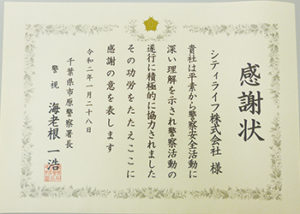 感謝状
シティライフ株式会社 様
貴社は平素から警察安全活動に
深い理解を示され警察活動の
遂行に積極的に協力されました
その功労をたたえここに
感謝の意を表します
令和二年一月二十八日
千葉県市原警察署長
警視 海老根 一浩